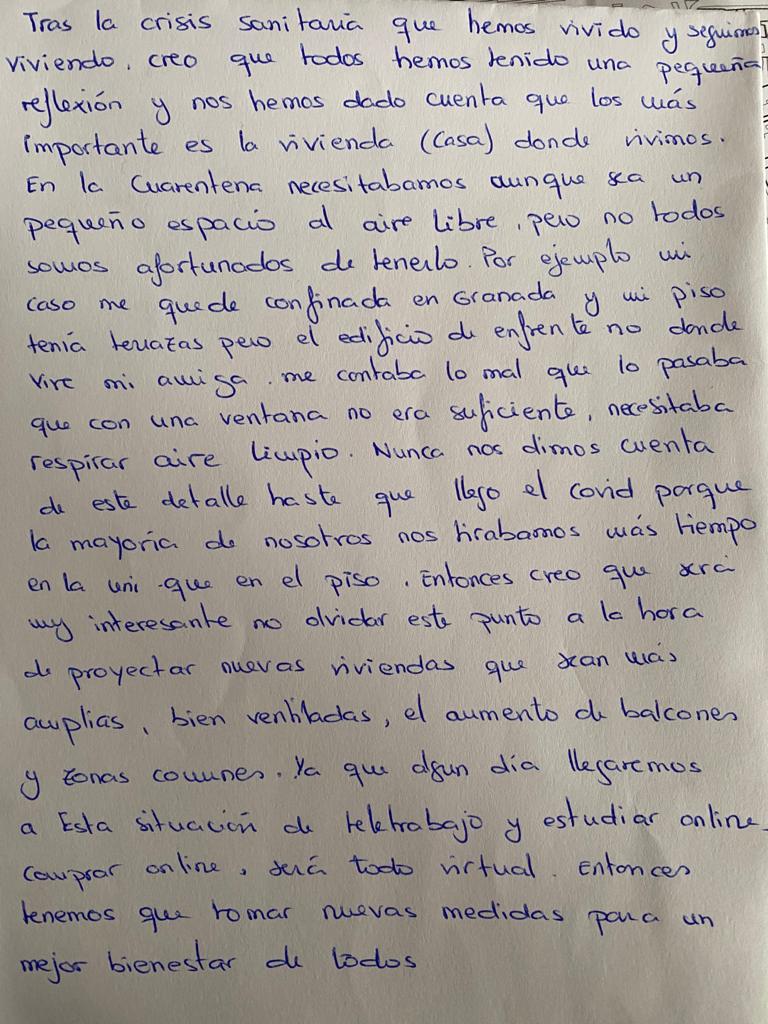 Tras la crisis sanitaria que hemos vivido y seguimos
viviendo, creo que todos hemos tenido una pequeña
reflexión y nos hemos dado cuenta que los más
importante es la vivienda (Casa) donde vivimos.
En la Cuarentena necesitabamos aunque sea un
pequeño espacio al aire libre, pero no todos
somos afortunados de tenerlo. Por ejemplo mi
caso me quede confinada en Granada y mi piso
tenía terrazas pero el edificio de enfrente no donde
vive mi amiga. me contaba lo mal que lo pasaba
que con una ventana no era suficiente, necesitaba
respirar aire limpio. Nunca nos dimos cuenta
de este detalle haste que llego el covid porque
la mayoría de nosotros nos tirabamos más tiempo
en la uni que en el piso. Entonces creo que será
muy interesante no olvidar este punto a la hora
de proyectar nuevas viviendas que sean más
amplias, bien ventiladas, el aumento de balcones
y zonas comunes. Ya que algun día llegaremos
a Esta situación de teletrabajo y estudiar online
comprar online, será todo virtual. Entonces
tenemos que tomar nuevas medidas para un
mejor bienestar de todos